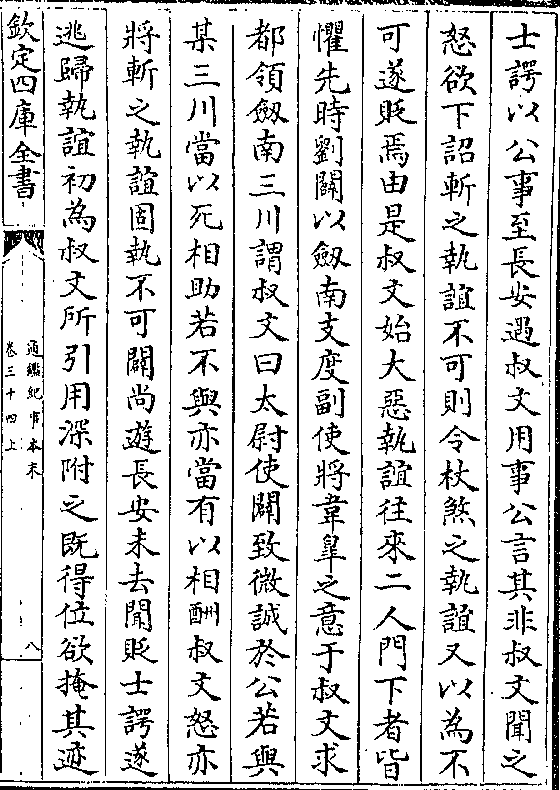 士諤以公事至長安遇叔文用事公言其非叔文聞之
怒欲下詔斬之執誼不可則令杖煞之執誼又以為不
可遂貶焉由是叔文始大惡執誼往來二人門下者皆
懼先時劉闢以劔南支度副使將韋臯之意于叔文求
都領劔南三川謂叔文曰太尉使闢致微誠於公若與
某三川當以死相助若不與亦當有以相酬叔文怒亦
將斬之執誼固執不可闢尚遊長安未去聞貶士諤遂
逃歸執誼初為叔文所引用深附之既得位欲掩其迹
欽定四庫全書
通鑑紀事本末
卷三十四上
八